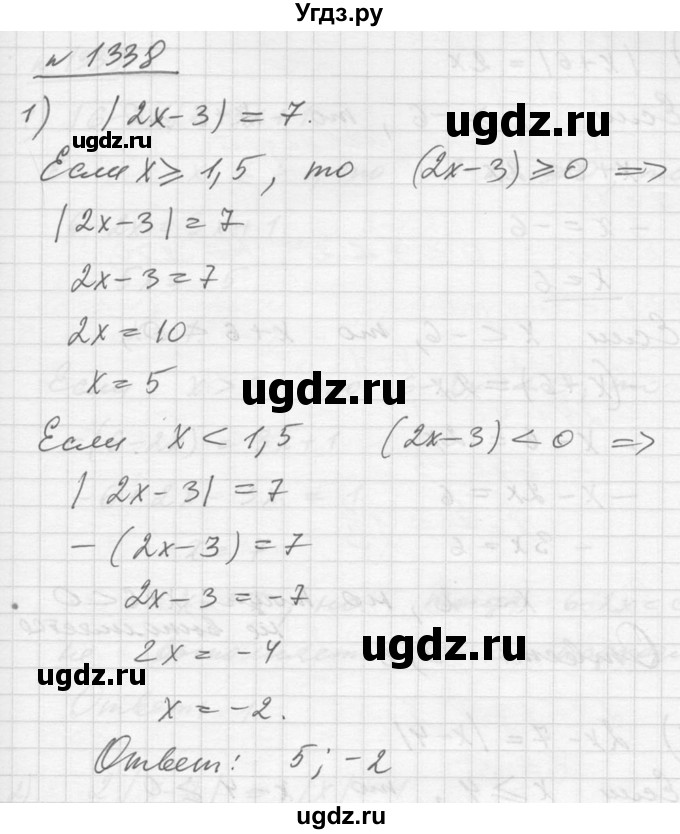 Угдз.ру
№ 1338
1) |2x-3| = 7.
Если x ⩾ 1,5, то (2x-3) ⩾ 0 =>
|2x-3| = 7
2x-3 = 7
2x = 10
x = 5
Если x < 1,5 (2x-3) < 0 =>
|2x-3| = 7
-(2x-3) = 7
2x-3 = -7
2x = -4
x = -2.
Ответ: 5; -2
ugdz.ru
ugdz.ru
ugdz.ru
ugdz.ru
ugdz.ru
ugdz.ru
ugdz.ru